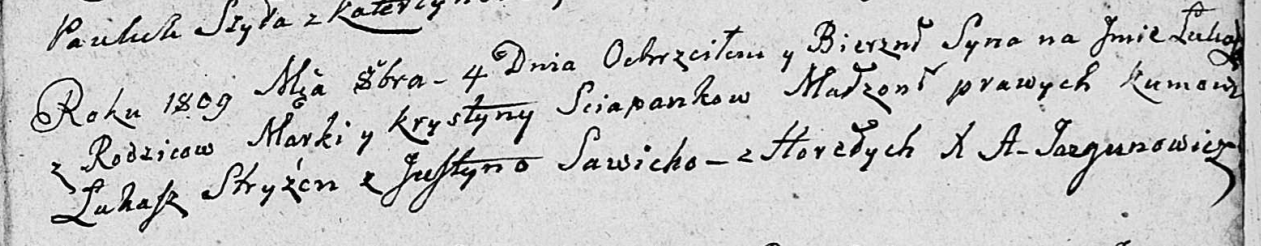 Pauluk Szyła z Katerzyn
Roku 1809 Mca 8bra - 4 Dnia Ochrzciłem y Bierzmł Syna na Jmie Łukasz
z Rodzicow Marki y Krystyny Sciapankow Małżonł prawych Kumowie
Łukasz Stryżen z Justyno Sawicko - z Horełych X A - Jazgunowicz